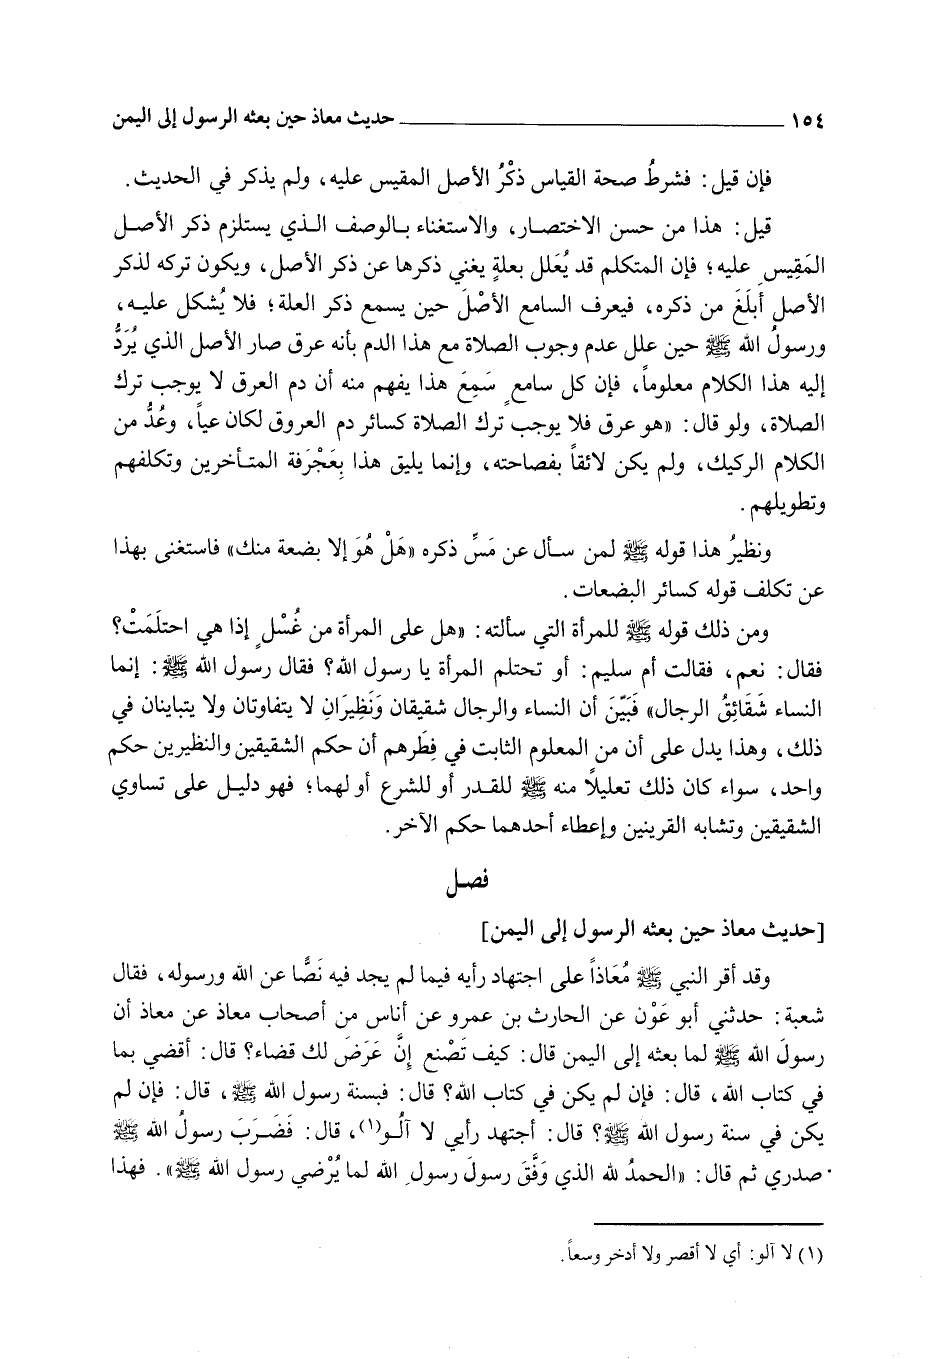 ١٥٤ ــــــــــــــــــ حديث معاذ حين بعثه الرسول إلى اليمن
فإن قيل: فشرطُ صحة القياس ذكْرُ الأصل المقيس عليه، ولم يذكر في الحديث.
قيل: هذا من حسن الاختصار، والاستغناء بالوصف الذي يستلزم ذكر الأصل
المَقِيس عليه؛ فإن المتكلم قد يُعَلل بعلةٍ يغني ذكرها عن ذكر الأصل، ويكون تركه لذكر
الأصل أبلَغَ من ذكره، فيعرف السامع الأصْلَ حين يسمع ذكر العلة؛ فلا يُشكل عليه،
ورسولُ الله ﷺ حين علل عدم وجوب الصلاة مع هذا الدم بأنه عرق صار الأصل الذي يُرَدُّ
إليه هذا الكلام معلوماً، فإن كل سامعٍ سَمِعَ هذا يفهم منه أن دم العرق لا يوجب ترك
الصلاة، ولو قال: «هو عرق فلا يوجب ترك الصلاة كسائر دم العروق لكان عياً، وعُدُّ من
الكلام الركيك، ولم يكن لائقاً بفصاحته، وإنما يليق هذا بِعَجْرَفة المتأخرين وتكلفهم
وتطويلهم.
ونظيرُ هذا قوله ﷺ لمن سأل عن مَسِّ ذكره «هَلْ هُوَ إلا بضعة منك» فاستغنى بهذا
عن تكلف قوله كسائر البضعات.
ومن ذلك قوله ﷺ للمرأة التي سألته: «هل على المرأة من غُسْلٍ إذا هي احتلَمَتْ؟
فقال: نعم، فقالت أم سليم: أو تحتلم المرأة يا رسول الله؟ فقال رسول الله ﷺ: إنما
النساء شَقَائِقُ الرجال» فَبَيّنَ أن النساء والرجال شقيقان وَنَظِيرَانِ لا يتفاوتان ولا يتباينان في
ذلك، وهذا يدل على أن من المعلوم الثابت في فِطَرهم أن حكم الشقيقين والنظيرين حكم
واحد، سواء كان ذلك تعليلاً منه ﷺ للقدر أو للشرع أو لهما؛ فهو دليل على تساوي
الشقيقين وتشابه القرينين وإعطاء أحدهما حكم الآخر.
فصل
[حديث معاذ حين بعثه الرسول إلى اليمن]
وقد أقر النبي ﷺ مُعَاذاً على اجتهاد رأيه فيما لم يجد فيه نَصًّا عن الله ورسوله، فقال
شعبة: حدثني أبو عَوْن عن الحارث بن عمرو عن أناس من أصحاب معاذ عن معاذ أن
رسولَ الله ﷺ لما بعثه إلى اليمن قال: كيف تَصْنع إنَّ عَرَضَ لك قضاء؟ قال: أقضي بما
في كتاب الله، قال: فإن لم يكن في كتاب الله؟ قال: فبسنة رسول الله ﷺ، قال: فإن لم
يكن في سنة رسول الله ﷺ؟ قال: أجتهد رأيي لا آلُو(١)، قال: فَضَرَبَ رسولُ الله ﷺ
صدري ثم قال: «الحمدُ لله الذي وَفَّقَ رسولَ رسولِ الله لما يُرْضي رسول الله ﷺ». فهذا
(١) لا آلو: أي لا أقصر ولا أدخر وسعاً.